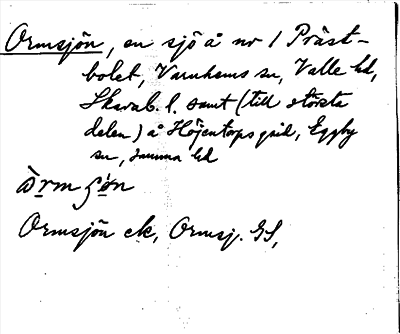 Ormsjön, en sjö å nr 1 Präst-
bolet, Varnhems sn, Valle hd,
Skarab. l. samt (till största
delen) å Höjentorps grd, Eggby
sn, samma hd
òrmʂön
Ormsjön ek, Ormsj. GS,